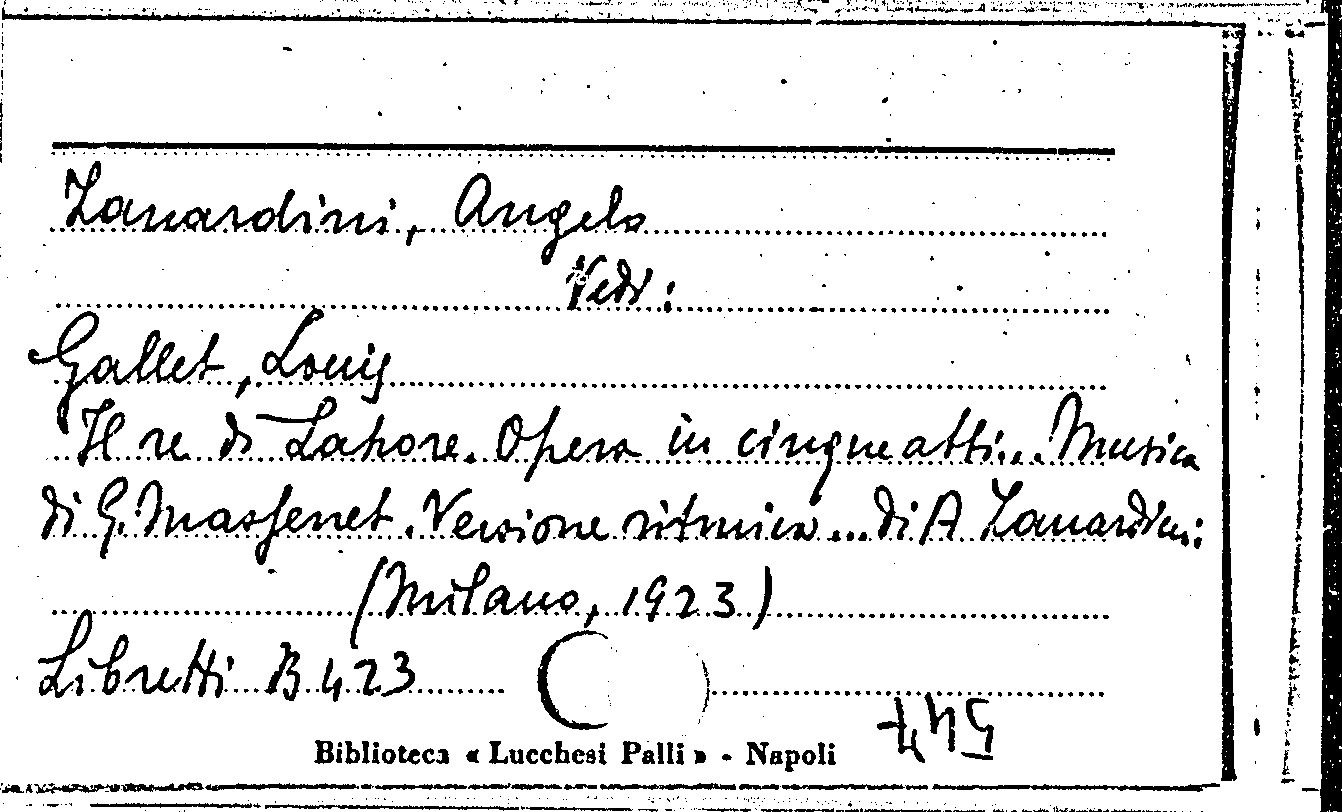 Zanardini, Angelo
Vedi:
Gallet, Louis
Il re di Lahore. Opera in cinque atti... Musica
di G. Massenet. Versione ritmica ... di A Zanardini
(Milano, 1923)
Libretti B 423
Biblioteca « Lucchesi Palli » - Napoli